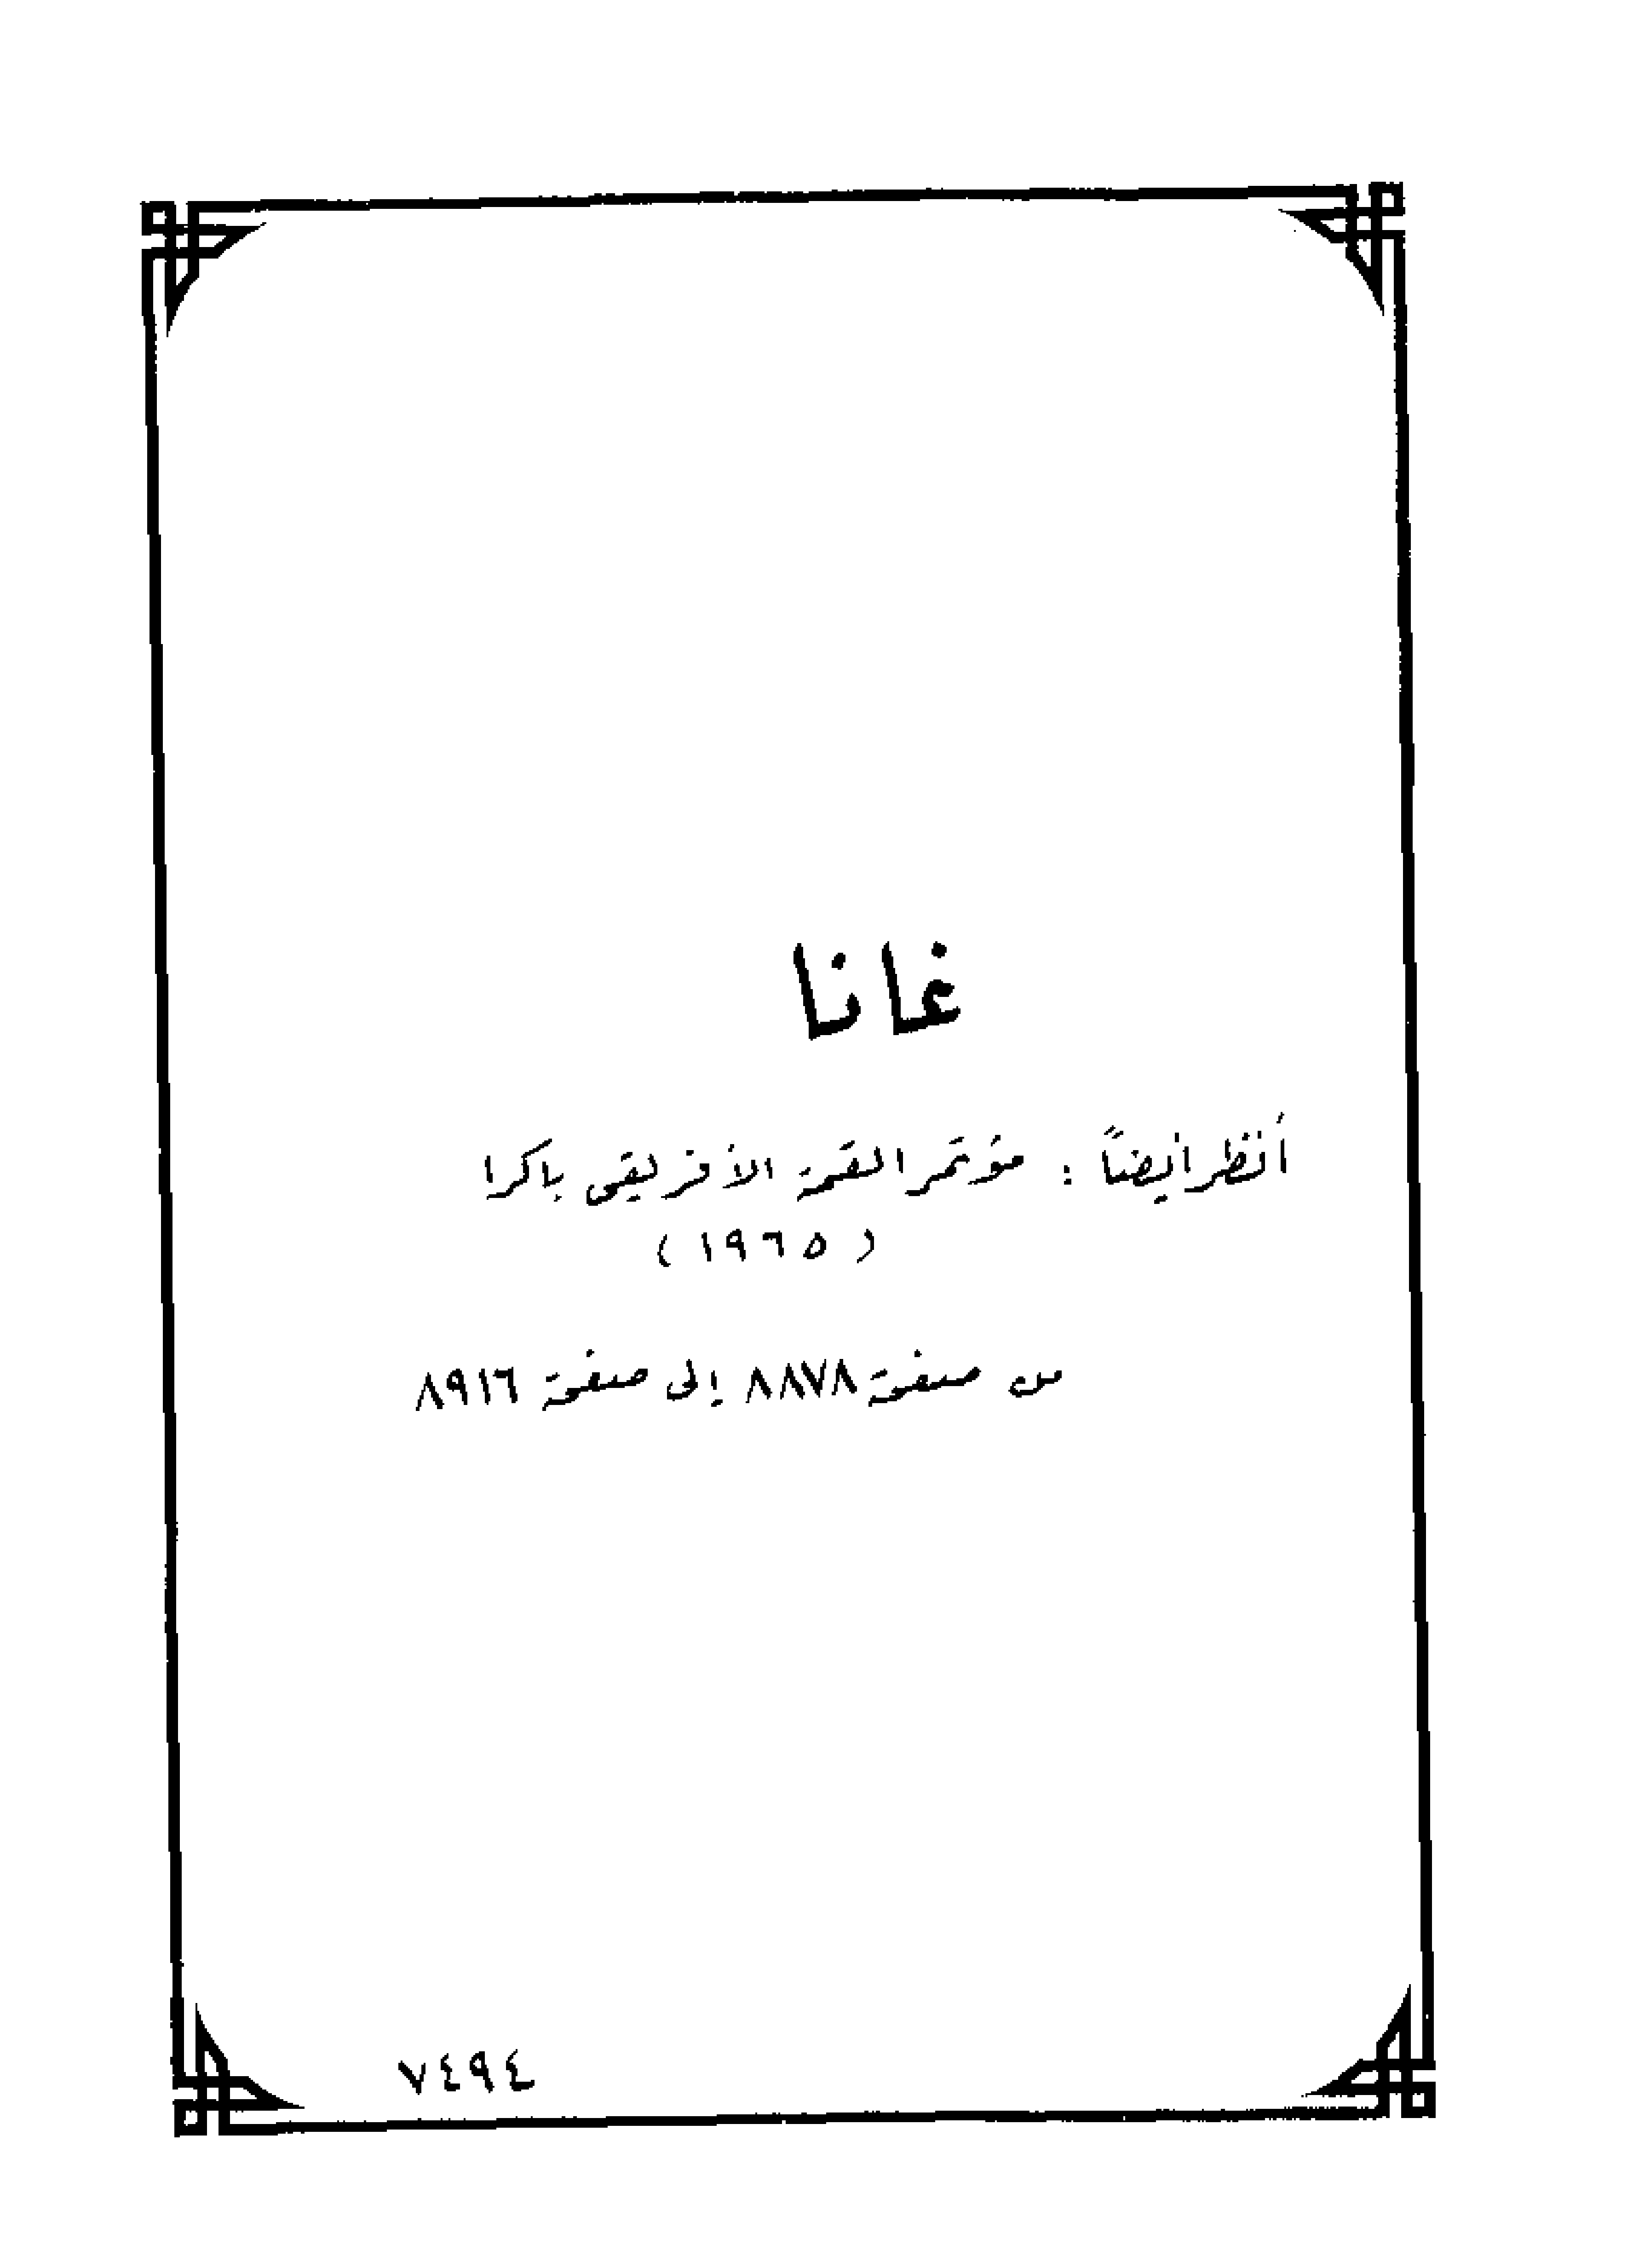 غانا
أنظر أيضاً : مؤتمر القمة الأفريقى باكرا
( ١٩٦٥ )
من صفحة ٨٨٧٨ إلى صفحة ٨٩١٦
٧٤٩٤